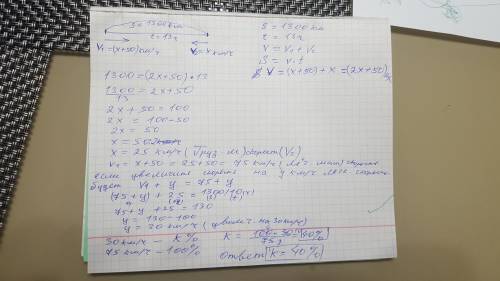 S = 1300 km
t = 13ч
V₁ = (x+50) км/ч
V₂ = x км/ч
S = 1300 km
t = 13ч
V = V₁ + V₂
S = v · t
V = (x+50) + x = (2x+50)
1300 = (2x+50) * 13
1300/13 = 2x + 50
2x + 50 = 100
2x = 100-50
2x = 50
x = 50:2
x = 25 км/ч (Груз м) скорост (V₂)
V₁ = x+50 = 25+50 = 75 км/ч
если увеличит скорость на y км/ч легк. скорость
будет V₁ + y = 75 + y
(75 + y) + 25 = 1300/10
75 + y + 25 = 130
y = 130 - 100
y = 30 км/ч (увелич. на 30 км/ч)
30 км/ч — K%
75 км/ч — 100%
K = 100 · 30 / 75 = 40%
Ответ K = 40%